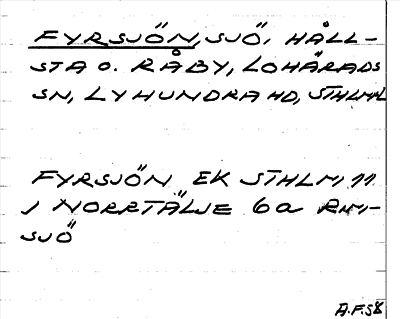 FYRSJÖN, SJÖ, HÅLL-
STA O. RÅBY, LOHÄRADS
SN, LYHUNDRA HD, STHLM L
FYRSJÖN EK STHLM 11
J NORRTÄLJE 6a
SJÖ
A.F.58